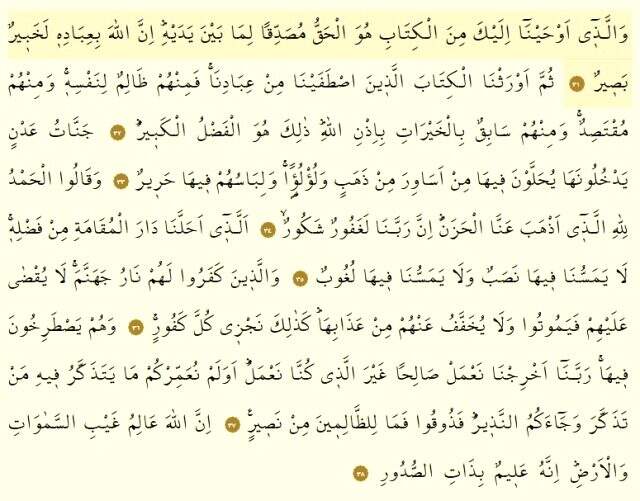 وَالَّذ۪ٓي اَوْحَيْنَٓا اِلَيْكَ مِنَ الْكِتَابِ هُوَ الْحَقُّ مُصَدِّقًا لِمَا بَيْنَ يَدَيْهِۜ اِنَّ اللهَ بِعِبَادِه۪ لَخَب۪يرٌ
بَص۪يرٌ ﴿٣١﴾ ثُمَّ اَوْرَثْنَا الْكِتَابَ الَّذ۪ينَ اصْطَفَيْنَا مِنْ عِبَادِنَاۚ فَمِنْهُمْ ظَالِمٌ لِنَفْسِه۪ۚ وَمِنْهُمْ
مُقْتَصِدٌۚ وَمِنْهُمْ سَابِقٌ بِالْخَيْرَاتِ بِاِذْنِ اللهِۜ ذٰلِكَ هُوَ الْفَضْلُ الْكَب۪يرُۜ ﴿٣٢﴾ جَنَّاتُ عَدْنٍ
يَدْخُلُونَهَا يُحَلَّوْنَ ف۪يهَا مِنْ اَسَاوِرَ مِنْ ذَهَبٍ وَلُؤْلُؤًاۚ وَلِبَاسُهُمْ ف۪يهَا حَر۪يرٌ ﴿٣٣﴾ وَقَالُوا الْحَمْدُ
لِلهِ الَّذ۪ٓي اَذْهَبَ عَنَّا الْحَزَنَۜ اِنَّ رَبَّنَا لَغَفُورٌ شَكُورٌۙ ﴿٣٤﴾ اَلَّذ۪ٓي اَحَلَّنَا دَارَ الْمُقَامَةِ مِنْ فَضْلِه۪ۚ
لَا يَمَسُّنَا ف۪يهَا نَصَبٌ وَلَا يَمَسُّنَا ف۪يهَا لُغُوبٌ ﴿٣٥﴾ وَالَّذ۪ينَ كَفَرُوا لَهُمْ نَارُ جَهَنَّمَۚ لَا يُقْضٰى
عَلَيْهِمْ فَيَمُوتُوا وَلَا يُخَفَّفُ عَنْهُمْ مِنْ عَذَابِهَاۜ كَذٰلِكَ نَجْز۪ي كُلَّ كَفُورٍۚ ﴿٣٦﴾ وَهُمْ يَصْطَرِخُونَ
ف۪يهَاۚ رَبَّنَٓا اَخْرِجْنَا نَعْمَلْ صَالِحًا غَيْرَ الَّذ۪ي كُنَّا نَعْمَلُۜ اَوَلَمْ نُعَمِّرْكُمْ مَا يَتَذَكَّرُ ف۪يهِ مَنْ
تَذَكَّرَ وَجَٓاءَكُمُ النَّذ۪يرُۜ فَذُوقُوا فَمَا لِلظَّالِم۪ينَ مِنْ نَص۪يرٍۚ ﴿٣٧﴾ اِنَّ اللهَ عَالِمُ غَيْبِ السَّمٰوَاتِ
وَالْاَرْضِۜ اِنَّهُ عَل۪يمٌ بِذَاتِ الصُّدُورِ ﴿٣٨﴾